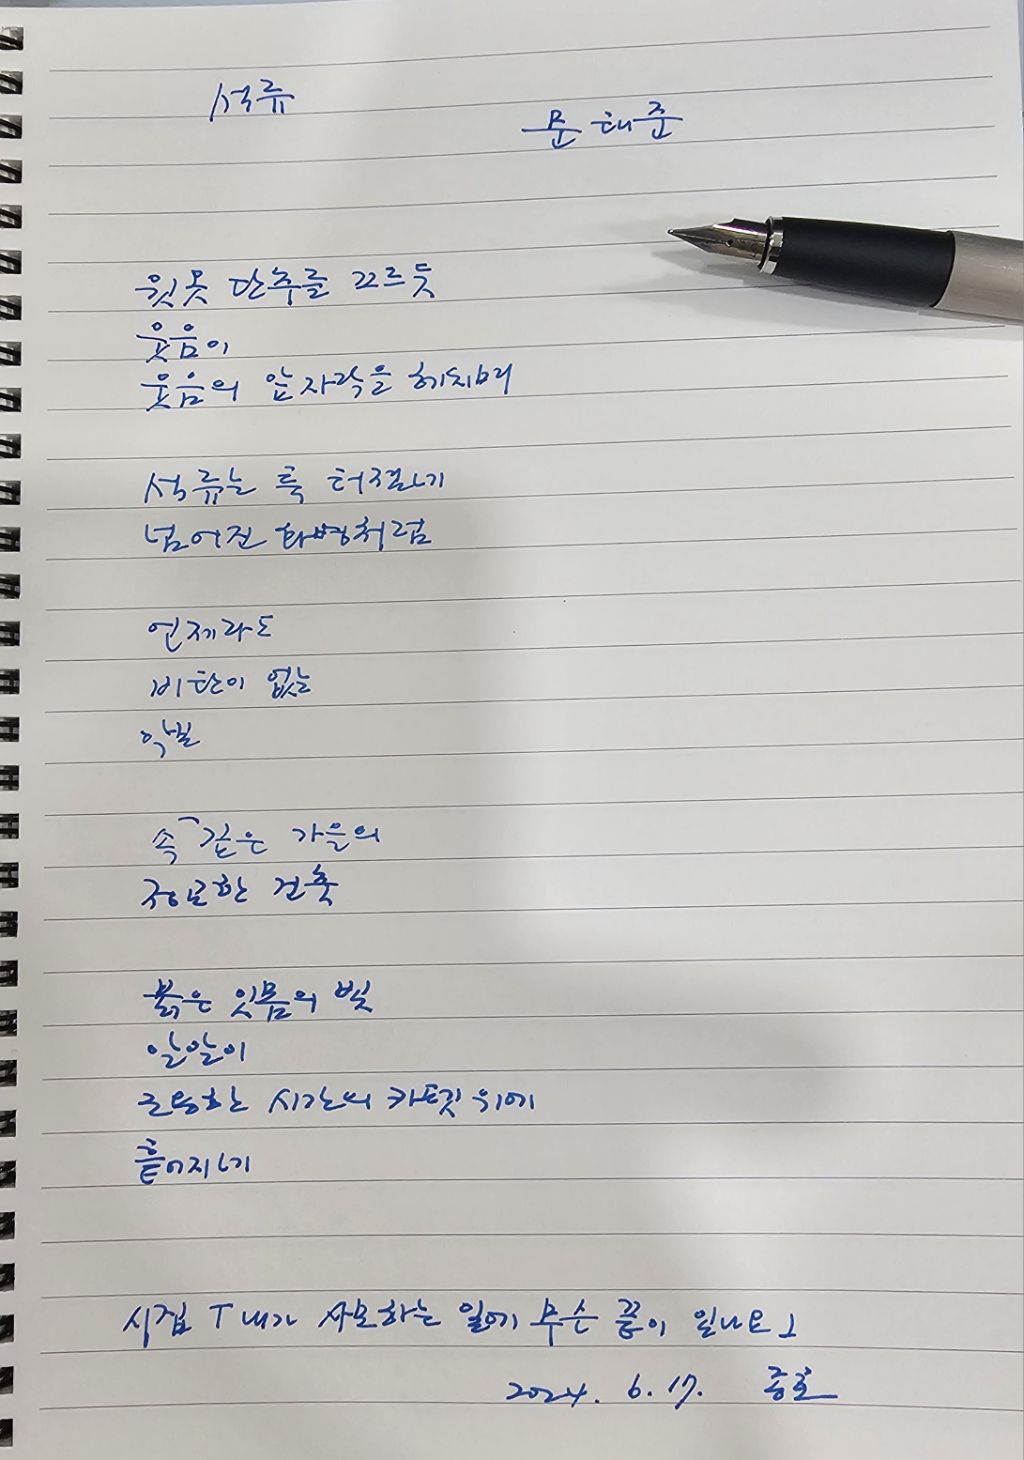 석류
문태준
윗옷 단추를 끄르듯
웃음이
웃음의 앞자락을 헤치며
석류는 툭 터졌네
넘어진 화병처럼
언제라도
비탄이 없는
악보
속 깊은 가을의
정교한 건축
붉은 잇몸의 빛
알알이
조용한 시간의 카펫 위에
흩어지네
시집 「내가 사모하는 일에 무슨 끝이 있나요」
2024. 6. 17.